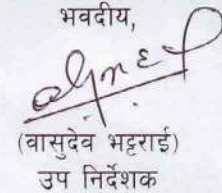 भवदीय,
(वासुदेव भट्टराई)
उप निर्देशक